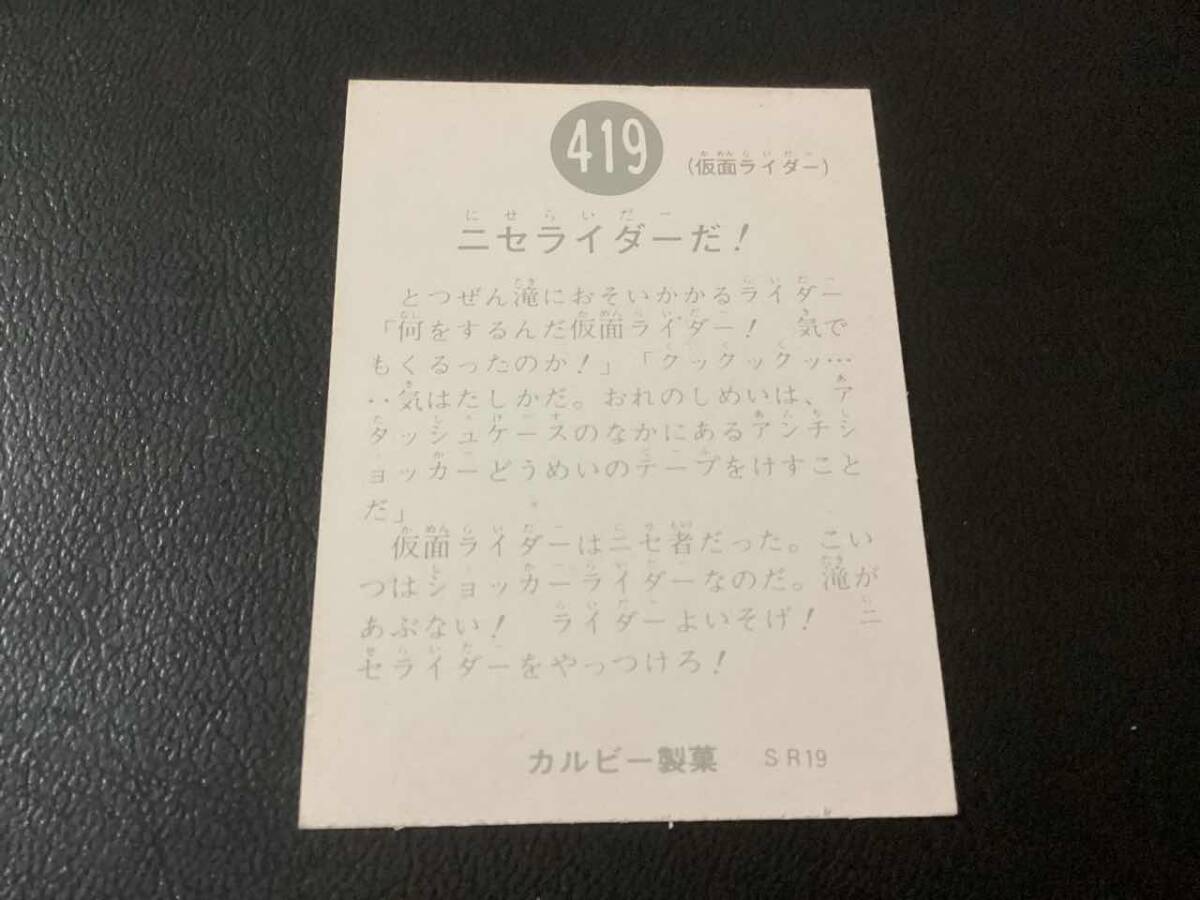 419
(仮面ライダー)
ニセライダーだ!
とつぜん滝におそいかかるライダー
「何をするんだ仮面ライダー! 気で
もくるったのか!」「クックックッ…
‥気はたしかだ。おれのしめいは、ア
タッシュケースのなかにあるアンチシ
ョッカーどうめいのテープをけすこと
だ」
仮面ライダーはニセ者だった。こい
つはショッカーライダーなのだ。滝が
あぶない! ライダーよいそげ! ニ
セライダーをやっつけろ!
カルビー製菓 SR19